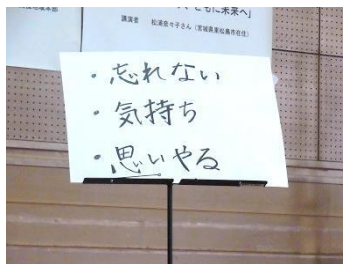 ともに未来へ」
講演者 松浦奈々子さん(宮城県東松島市在住)
・忘れない
・気持ち
・思いやる